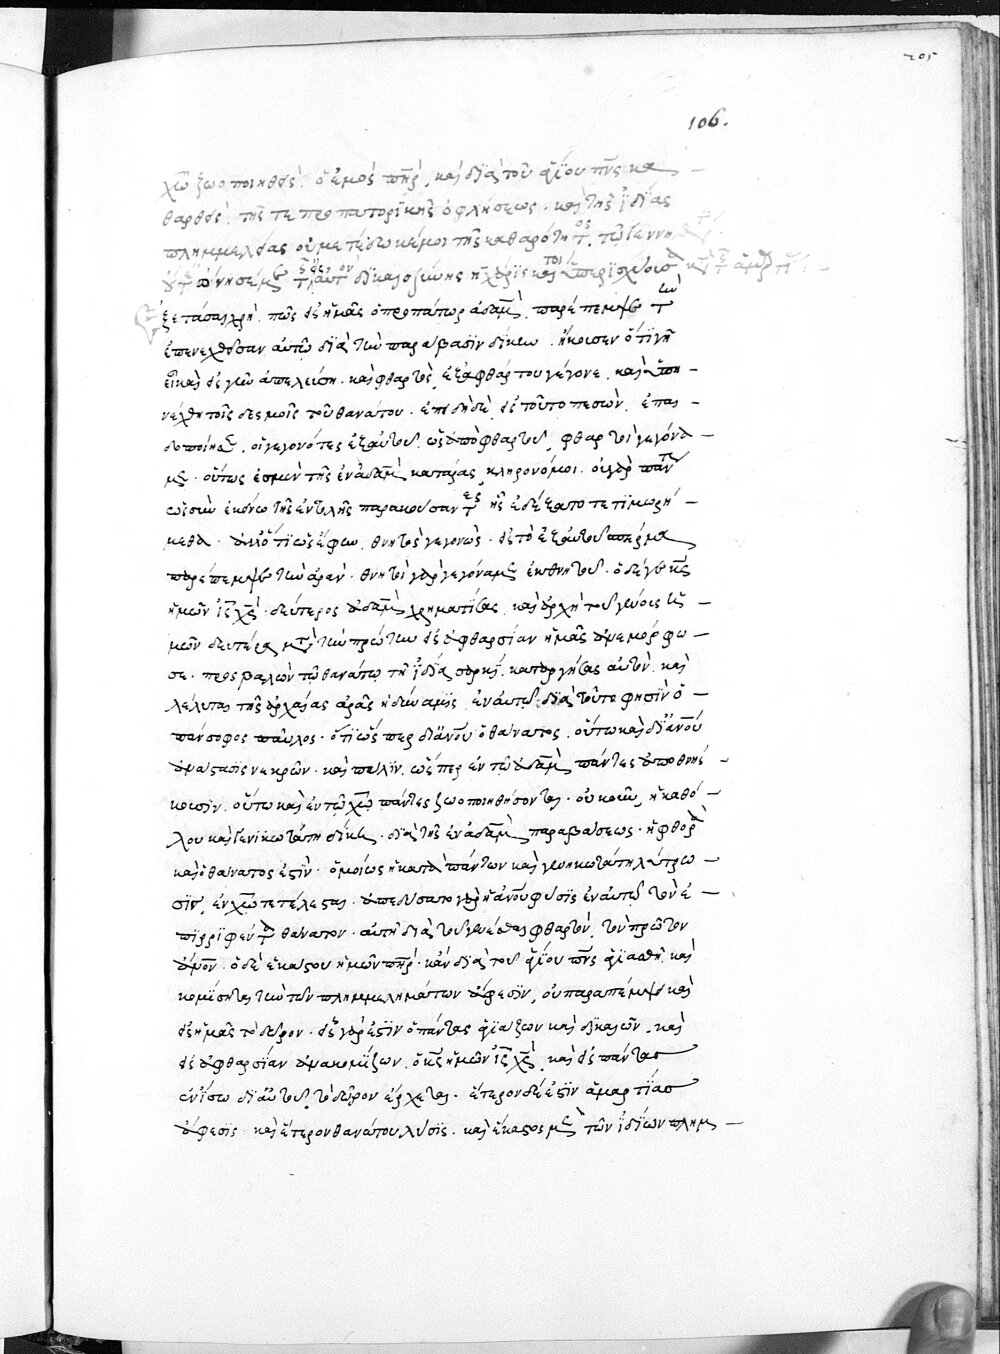 205
106.
χω ζωοποιηθεὶς ὁ ἐμὸς πηρ, καὶ διὰ τοῦ ἁγίου πνς κα
θαρθεὶς τῆς τε προπατορικῆς ὀφλήσεως. καὶ τῆς ἰδίας
πλημμελείας οὐ μετέδωκέ μοι τῆς καθαρότητος
δικαιοσύνης ἢ χωρὶς καὶ
ἐξετάσαι χρὴ πῶς εἰς ἡμᾶς ὁ προπάτωρ ἀδὰμ, παρέπεμψε τὴν
ἐπενεχθεῖσαν αὐτῶ διὰ τὴν παράβασιν δίκην. ἤκουσεν ὅτι γῆ
εἶ καὶ εἰς γῆν ἀπελεύση. καὶ φθαρτὸς ἐξ ἀφθάρτου γέγονε. καὶ ὑπη
νέχθη τοῖς δεσμοῖς τοῦ θανάτου. ἐπειδὴ δὲ εἰς τοῦτο πεσὼν, ἐπαι
δοποίησεν, οἱ γεγονότες ἐξ αὐτοῦ ὡς ἀπὸ φθαρτοῦ, φθαρτοὶ γεγόνα
μεν. οὕτως ἐσμὲν τῆς ἐν ἀδὰμ κατάρας κληρονόμοι. οὐ γὰρ πάντως
ὡς σὺν ἐκείνω τῆς ἐντολῆς παρακούσαντες ἧς ἐδέξατο τετιμωρή
μεθα. ἀλλ' ὅτι ὡς ἔφην, θνητὸς γεγονὼς. εἰς τὸ ἐξ αὐτοῦ σπέρμα
παρέπεμψε τὴν ἀράν. θνητοὶ γὰρ γεγόναμεν ἐκ θνητοῦ. ὁ δέ γε κς
ἡμῶν ις χς. δεύτερος ἀδὰμ χρηματίσας καὶ ἀρχὴ τοῦ γένους ἡ
μῶν δευτέρα μετὰ τὴν πρώτην εἰς ἀφθαρσίαν ἡμᾶς ἀνεμόρφω
σε. προσβαλὼν τῶ θανάτω τῆ ἰδία σαρκὶ. καταργήσας αὐτὸν. καὶ
λέλυται τῆς ἀρχαίας ἀρᾶς ἡ δύναμις ἐν αὐτῶ. διὰ τοῦτο φησὶν ὁ
πάνσοφος παῦλος. ὅτι ὥσπερ δι' ανου ὁ θάνατος. οὕτω καὶ δι' ανου
ἀνάστασις νεκρῶν. καὶ πάλιν. ὥσπερ ἐν τῶ ἀδὰμ πάντες ἀποθνή
σκουσιν. οὕτω καὶ ἐν τῶ χω πάντες ζωοποιηθήσονται. οὐκοῦν, ἡ καθό
λου καὶ γενικωτάτη δίκη. διὰ τῆς ἐν ἀδὰμ παραβάσεως. ἡ φθορὰ
καὶ ὁ θάνατος ἐστὶν. ὁμοίως ἡ κατὰ πάντων καὶ γενικωτάτη λύτρω
σις, ἐν χω τετέλεσται. ἀπεδύσατο γὰρ ἡ ανου φύσις ἐν αὐτῶ τὸν ἐ
πιρριφέντα θάνατον. αὐτῆ διὰ τοῦ γενέσθαι φθαρτὸν τὸν πρῶτον
ανον. ὁ δὲ ἑκάστου ἡμῶν πηρ. κἂν διὰ τοῦ ἁγίου πνς ἁγιασθῆ. καὶ
κομίσηται τὴν τῶν πλημμελημάτων ἄφεσιν, οὐ παραπέμψει καὶ
εἰς ἡμᾶς τὸ δῶρον. εἷς γάρ ἐστιν ὁ πάντας ἁγιάζων καὶ δικαιῶν, καὶ
εἰς ἀφθαρσίαν ἀνακομίζων. ὁ κς ἡμῶν ις χς, καὶ εἰς πάντας
ἐν ἴσω δι' αὐτοῦ τὸ δῶρον ἔρχεται. ἕτερον δέ ἐστιν ἁμαρτίας
ἄφεσις. καὶ ἕτερον θανάτου λύσις. καὶ ἕκαστος μὲν τῶν ἰδίων πλημ